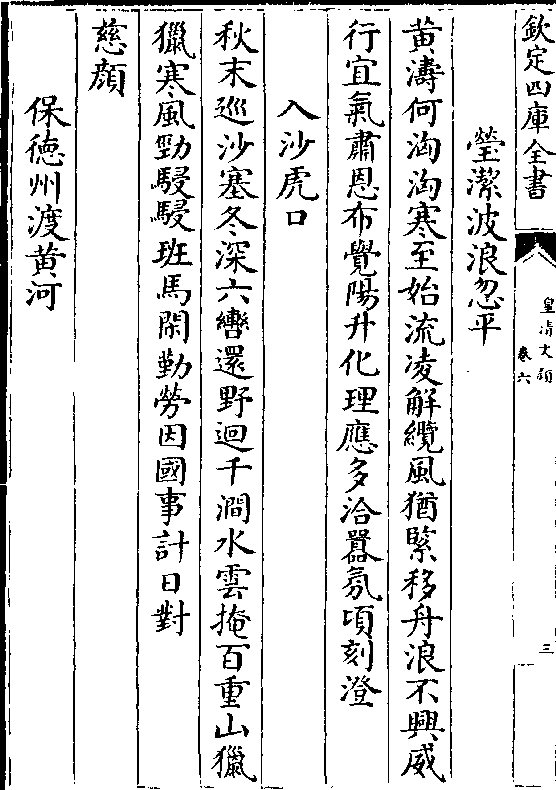 欽定四庫全書
皇清文頴
卷六
三
瑩潔波浪忽平
黄濤何洶洶寒至始流凌解纜風猶緊移舟浪不興威
行宜氣肅恩布覺陽升化理應多洽囂氛頃刻澄
入沙虎口
秋末巡沙塞冬深六轡還野迴千澗水雲掩百重山獵
獵寒風勁駸駸班馬閑勤勞因國事計日對
慈顔
保徳州渡黄河